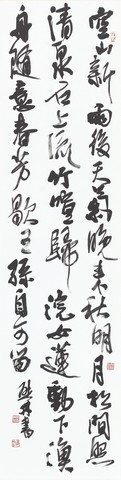 空山新雨後天氣晚来秋明月松間照
清泉石上流竹喧歸浣女蓮動下漁
舟隨意春芳歇王孫自可留
書